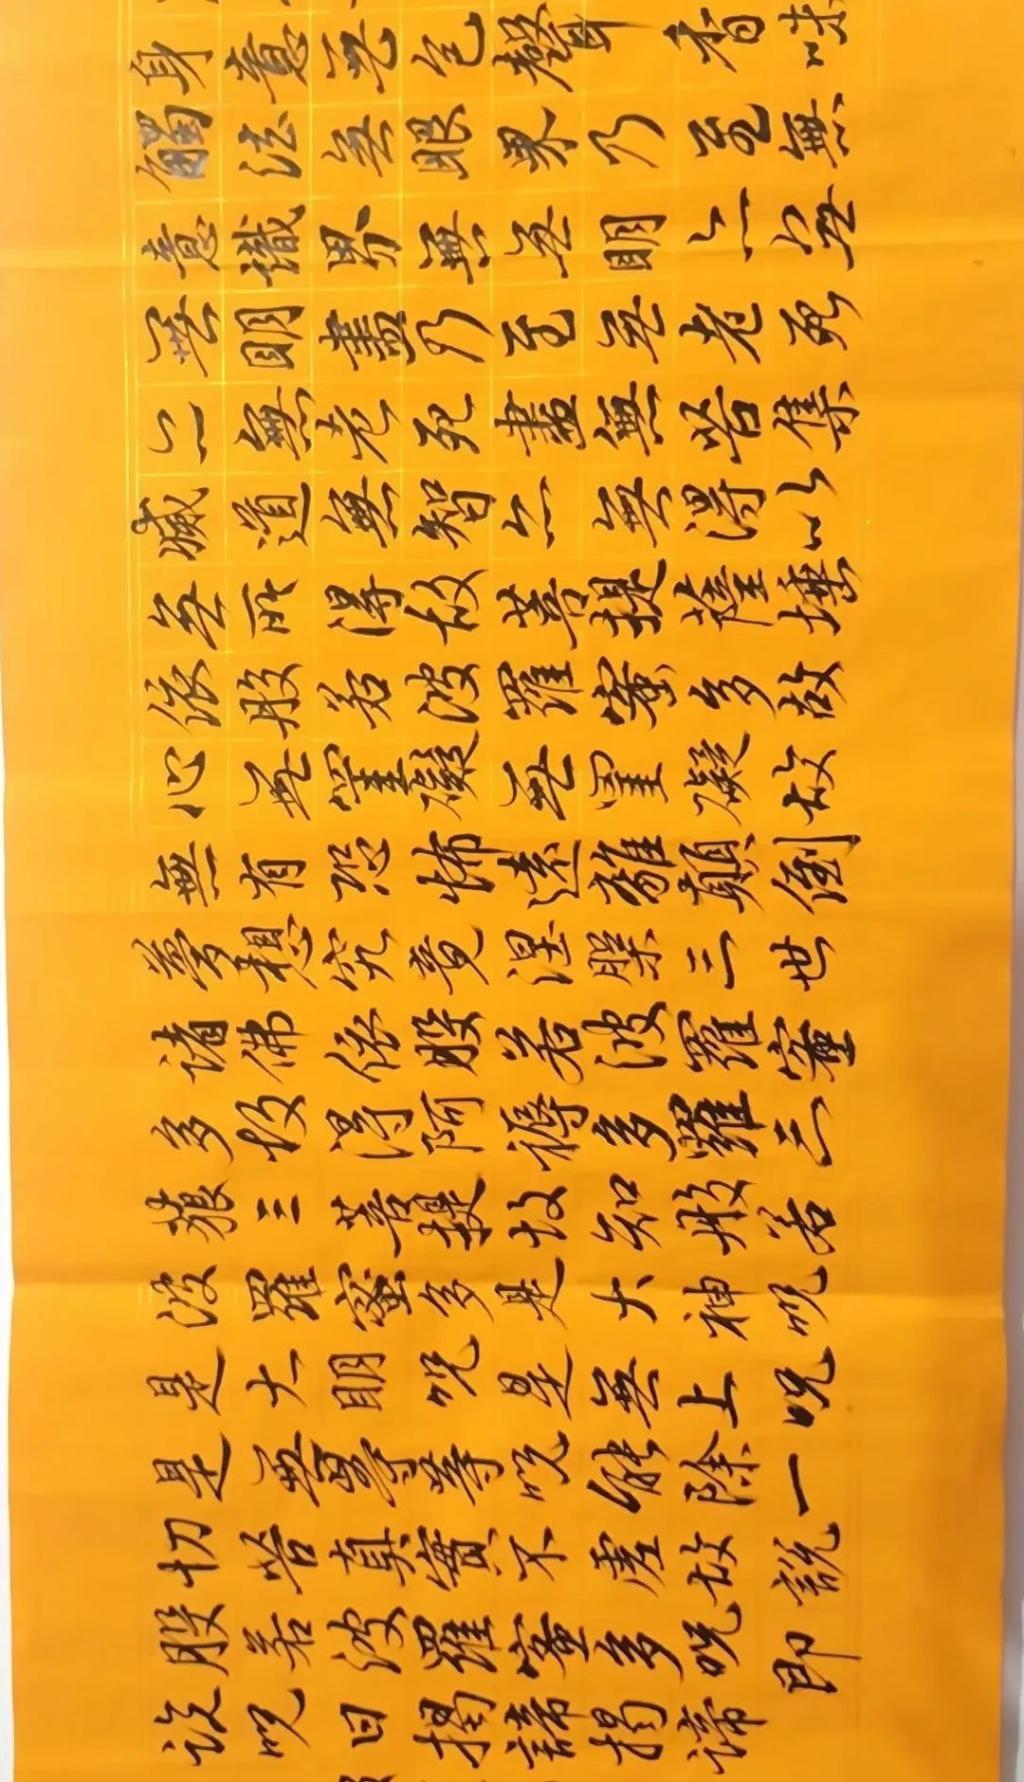 身意无色聲香味
觸法无眼界乃至無
意識界無无明亦无
无明盡乃至无老死
亦無老死盡無苦集
滅道無智亦無得以
无所得故菩提薩埵
依般若波羅蜜多故
心无罣礙无罣礙故
無有恐怖遠離顛倒
夢想究竟涅槃三世
諸佛依般若波羅蜜
多故得阿耨多羅三
藐三菩提故知般若
波羅蜜多是大神呪
是大明呪是無上呪
是無等等呪能除一
切苦真實不虛故說
般若波羅蜜多呪即
說呪曰揭諦揭諦